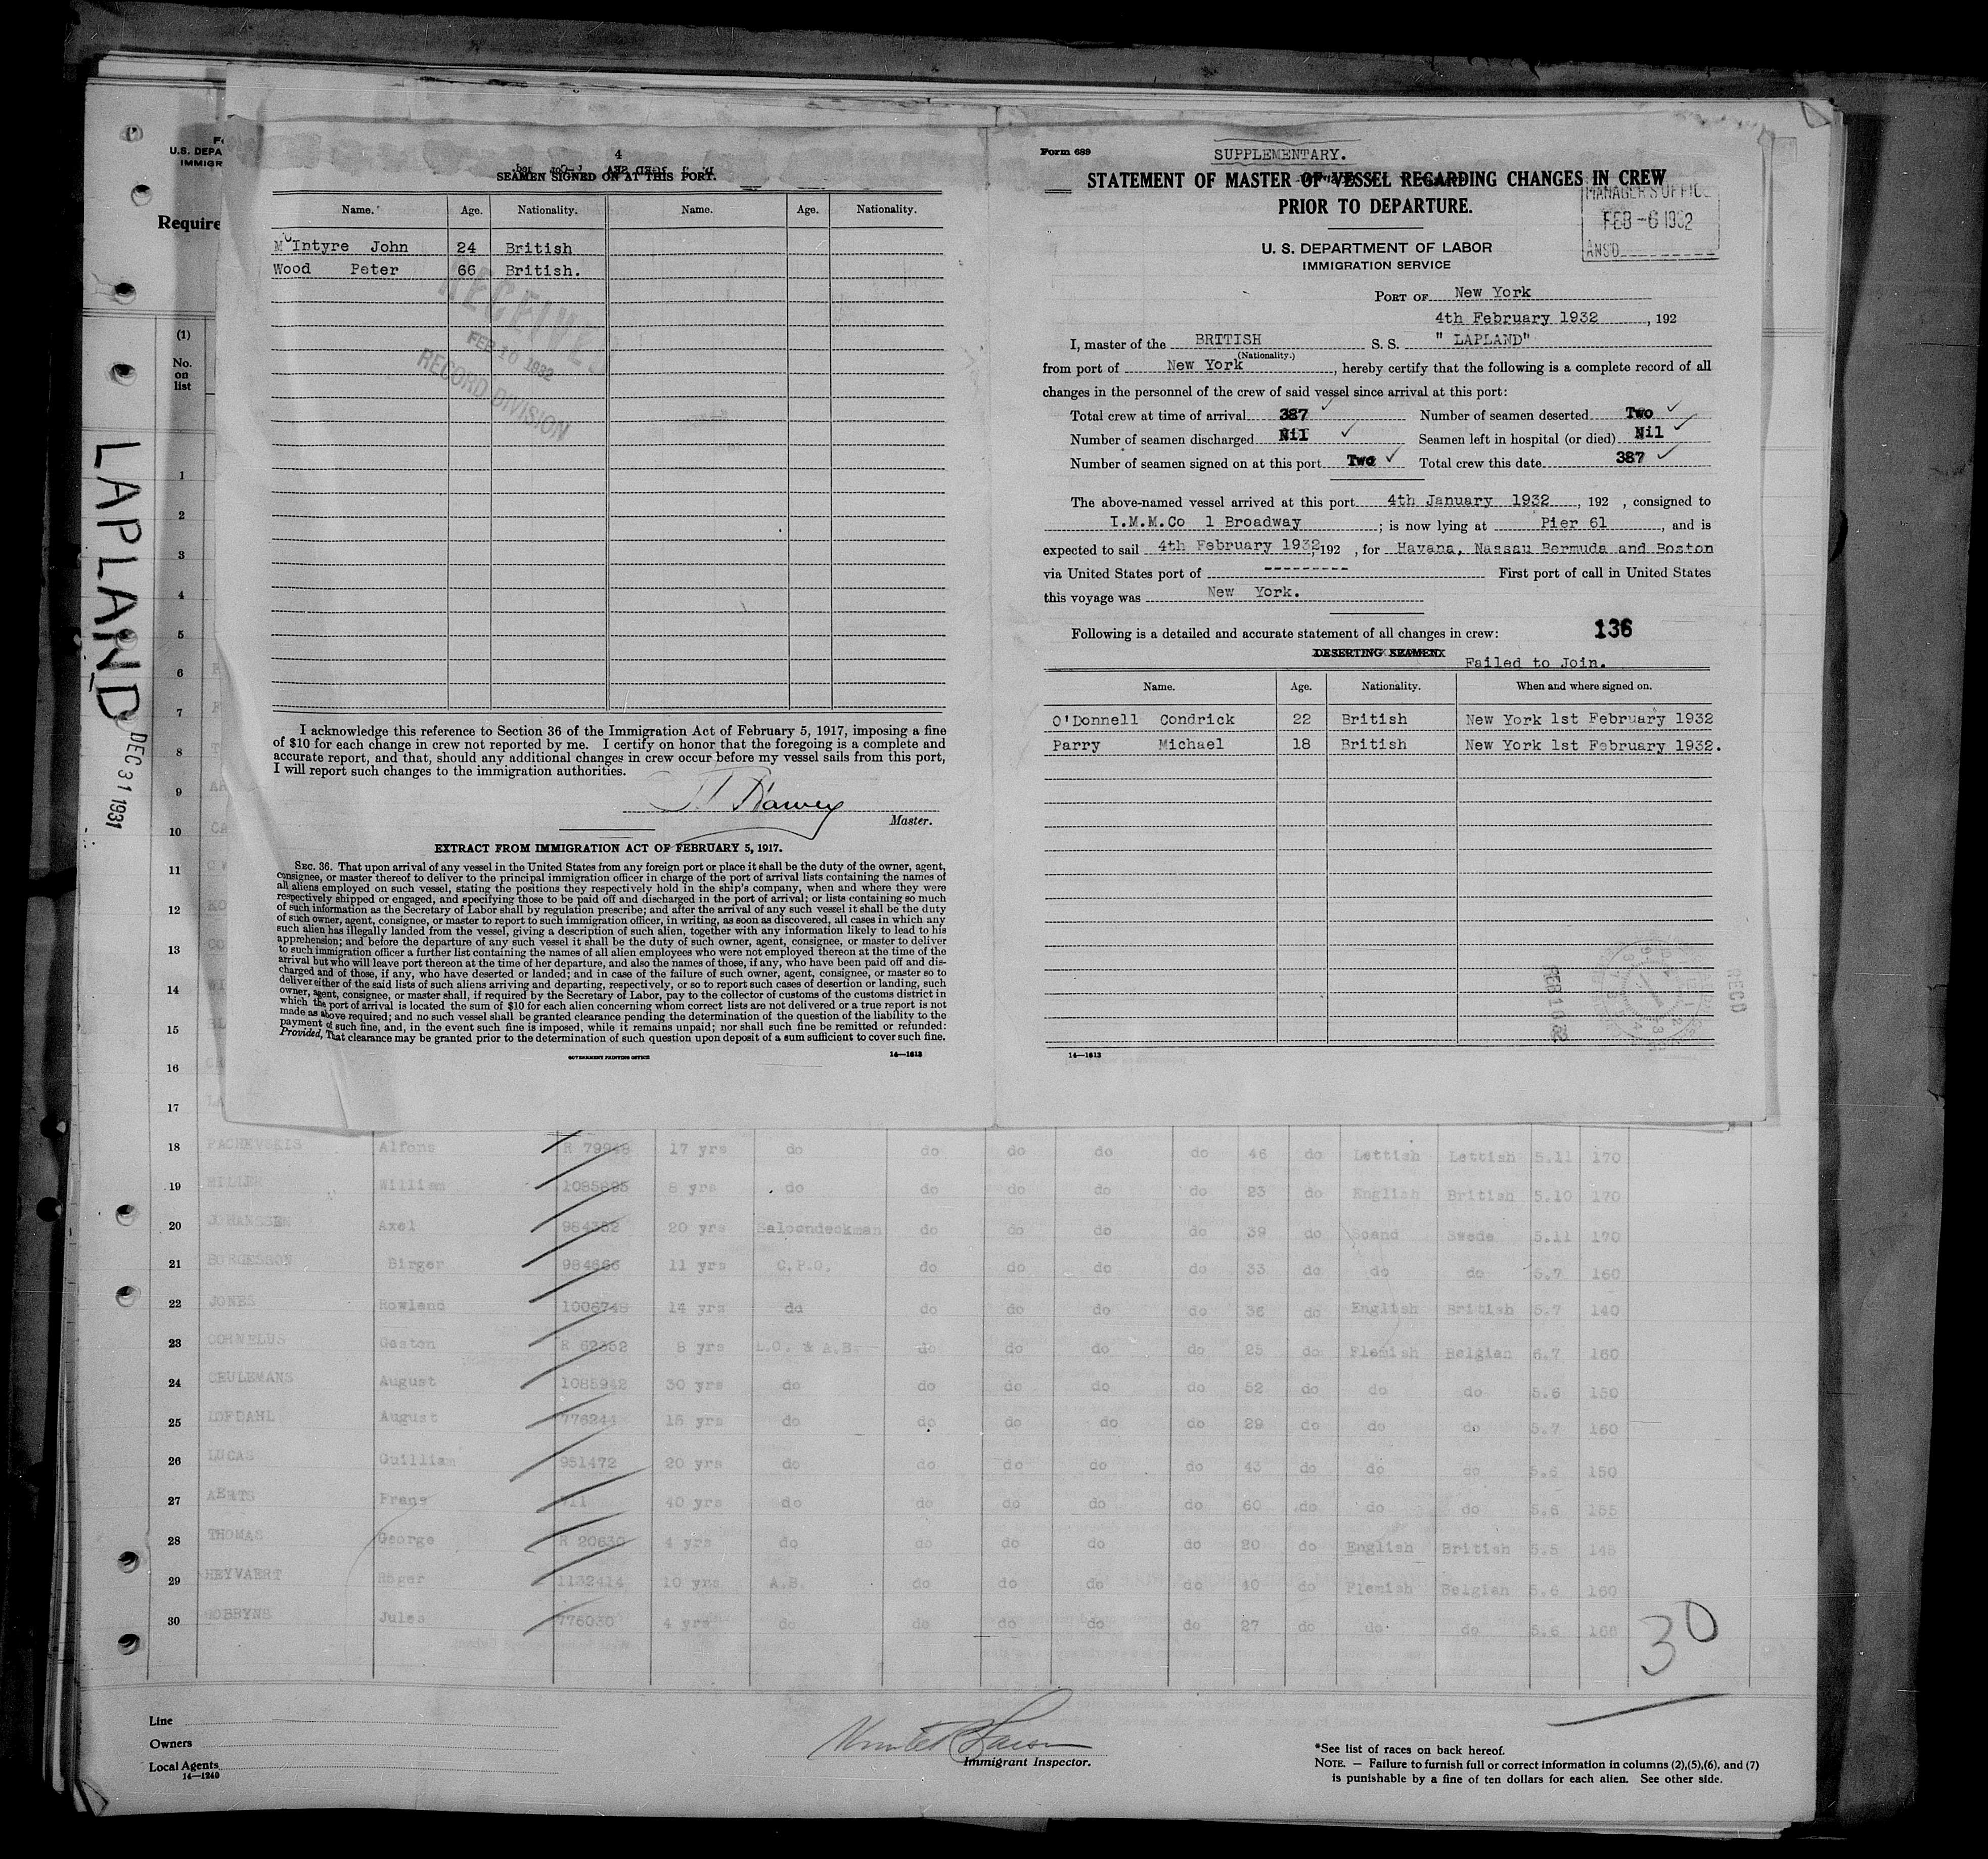 4
SEAMEN SIGNED ON AT THIS PORT.
Name. Age. Nationality. Name. Age. Nationality.
McIntyre John 24 British
Wood Peter 66 British.
RECEIVED
FEB 10 1932
RECORD DIVISION
I acknowledge this reference to Section 36 of the Immigration Act of February 5, 1917, imposing a fine
of $10 for each change in crew not reported by me. I certify on honor that the foregoing is a complete and
accurate report, and that, should any additional changes in crew occur before my vessel sails from this port,
I will report such changes to the immigration authorities.
Harvey
Master.
EXTRACT FROM IMMIGRATION ACT OF FEBRUARY 5, 1917.
SEC. 36. That upon arrival of any vessel in the United States from any foreign port or place it shall be the duty of the owner, agent,
consignee, or master thereof to deliver to the principal immigration officer in charge of the port of arrival lists containing the names of
all aliens employed on such vessel, stating the positions they respectively hold in the ship's company, when and where they were
respectively shipped or engaged, and specifying those to be paid off and discharged in the port of arrival; or lists containing so much
of such information as the Secretary of Labor shall by regulation prescribe; and after the arrival of any such vessel it shall be the duty
of such owner, agent, consignee, or master to report to such immigration officer, in writing, as soon as discovered, all cases in which any
such alien has illegally landed from the vessel, giving a description of such alien, together with any information likely to lead to his
apprehension; and before the departure of any such vessel it shall be the duty of such owner, agent, consignee, or master to deliver
to such immigration officer a further list containing the names of all alien employees who were not employed thereon at the time of the
arrival but who will leave port thereon at the time of her departure, and also the names of those, if any, who have been paid off and dis-
charged and of those, if any, who have deserted or landed; and in case of the failure of such owner, agent, consignee, or master so to
deliver either of the said lists of such aliens arriving and departing, respectively, or so to report such cases of desertion or landing, such
owner, agent, consignee, or master shall, if required by the Secretary of Labor, pay to the collector of customs of the customs district in
which the port of arrival is located the sum of $10 for each alien concerning whom correct lists are not delivered or a true report is not
made as above required; and no such vessel shall be granted clearance pending the determination of the question of the liability to the
payment of such fine, and, in the event such fine is imposed, while it remains unpaid; nor shall such fine be remitted or refunded:
Provided, That clearance may be granted prior to the determination of such question upon deposit of a sum sufficient to cover such fine.
GOVERNMENT PRINTING OFFICE 14—1613
Form 689
SUPPLEMENTARY.
STATEMENT OF MASTER OF VESSEL REGARDING CHANGES IN CREW
PRIOR TO DEPARTURE.
MANAGER'S OFFICE
FEB -6 1932
ANS'D
U. S. DEPARTMENT OF LABOR
IMMIGRATION SERVICE
PORT OF New York
4th February 1932, 192
I, master of the BRITISH S. S. "LAPLAND"
(Nationality.)
from port of New York, hereby certify that the following is a complete record of all
changes in the personnel of the crew of said vessel since arrival at this port:
Total crew at time of arrival 387 Number of seamen deserted Two
Number of seamen discharged Nil Seamen left in hospital (or died) Nil
Number of seamen signed on at this port Two Total crew this date 387
The above-named vessel arrived at this port 4th January 1932, 192 , consigned to
I.M.M.Co 1 Broadway ; is now lying at Pier 61, and is
expected to sail 4th February 1932, 192 , for Havana, Nassau Bermuda and Boston
via United States port of --------- First port of call in United States
this voyage was New York.
Following is a detailed and accurate statement of all changes in crew: 136
DESERTING SEAMEN Failed to Join.
Name. Age. Nationality. When and where signed on.
O'Donnell Condrick 22 British New York 1st February 1932
Parry Michael 18 British New York 1st February 1932.
FEB 10 32
RECD
14—1613
U.S. DEPA
IMMIGR
Require
(1)
No.
on
list
LAPLAND
DEC 31 1931
1
2
3
4
5
6
7
8
9
10
11
12
13
14
15
16
17
18 PACHEVSKIS Alfons R 79948 17 yrs do do do do do 46 do Lettish Lettish 5.11 170
19 MILLER William 1085895 8 yrs do do do do do 23 do English British 5.10 170
20 JOHANSSEN Axel 984382 20 yrs Saloondeckman do do do do 39 do Scand Swede 5.11 170
21 BORGESSON Birger 984666 11 yrs C.P.O. do do do do 33 do do do 5.7 160
22 JONES Rowland 1006748 14 yrs do do do do do 36 do English British 5.7 140
23 CORNELUS Gaston R 62352 8 yrs L.O. & A.B. do do do do 25 do Flemish Belgian 6.7 160
24 CEULEMANS August 1085942 30 yrs do do do do do 52 do do do 5.6 150
25 LOFDAHL August 776244 15 yrs do do do do do 29 do do do 5.7 160
26 LUCAS Guilliam 951472 20 yrs do do do do do 43 do do do 5.6 150
27 AERTS Frans 711 40 yrs do do do do do 60 do do do 5.6 155
28 THOMAS George R 20630 4 yrs do do do do do 20 do English British 5.5 145
29 HEYVAERT Roger 1132414 10 yrs A.B. do do do do 40 do Flemish Belgian 5.6 160
30 ROBBYNS Jules 776030 4 yrs do do do do do 27 do do do 5.6 160
30
Line
Owners
Local Agents
14—1240
Immigrant Inspector.
*See list of races on back hereof.
NOTE. — Failure to furnish full or correct information in columns (2),(5),(6), and (7)
is punishable by a fine of ten dollars for each alien. See other side.